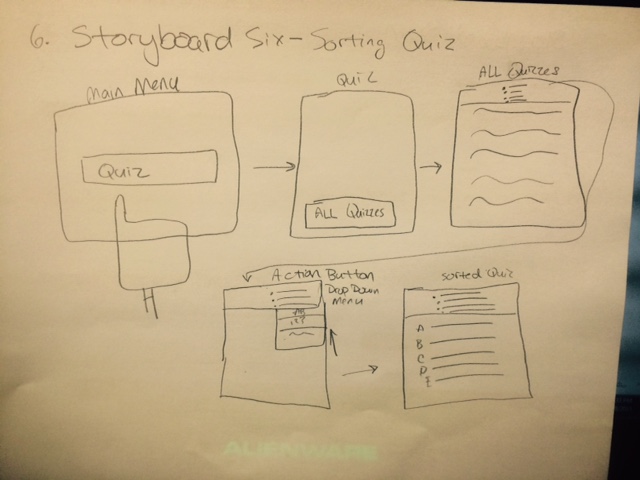 6. Storyboard Six - Sorting Quiz
Main Menu
Quiz
Quiz
ALL Quizzes
ALL Quizzes
Action Button
Drop Down
Menu
Sorted Quiz
A
B
C
D
E
ALIENWARE